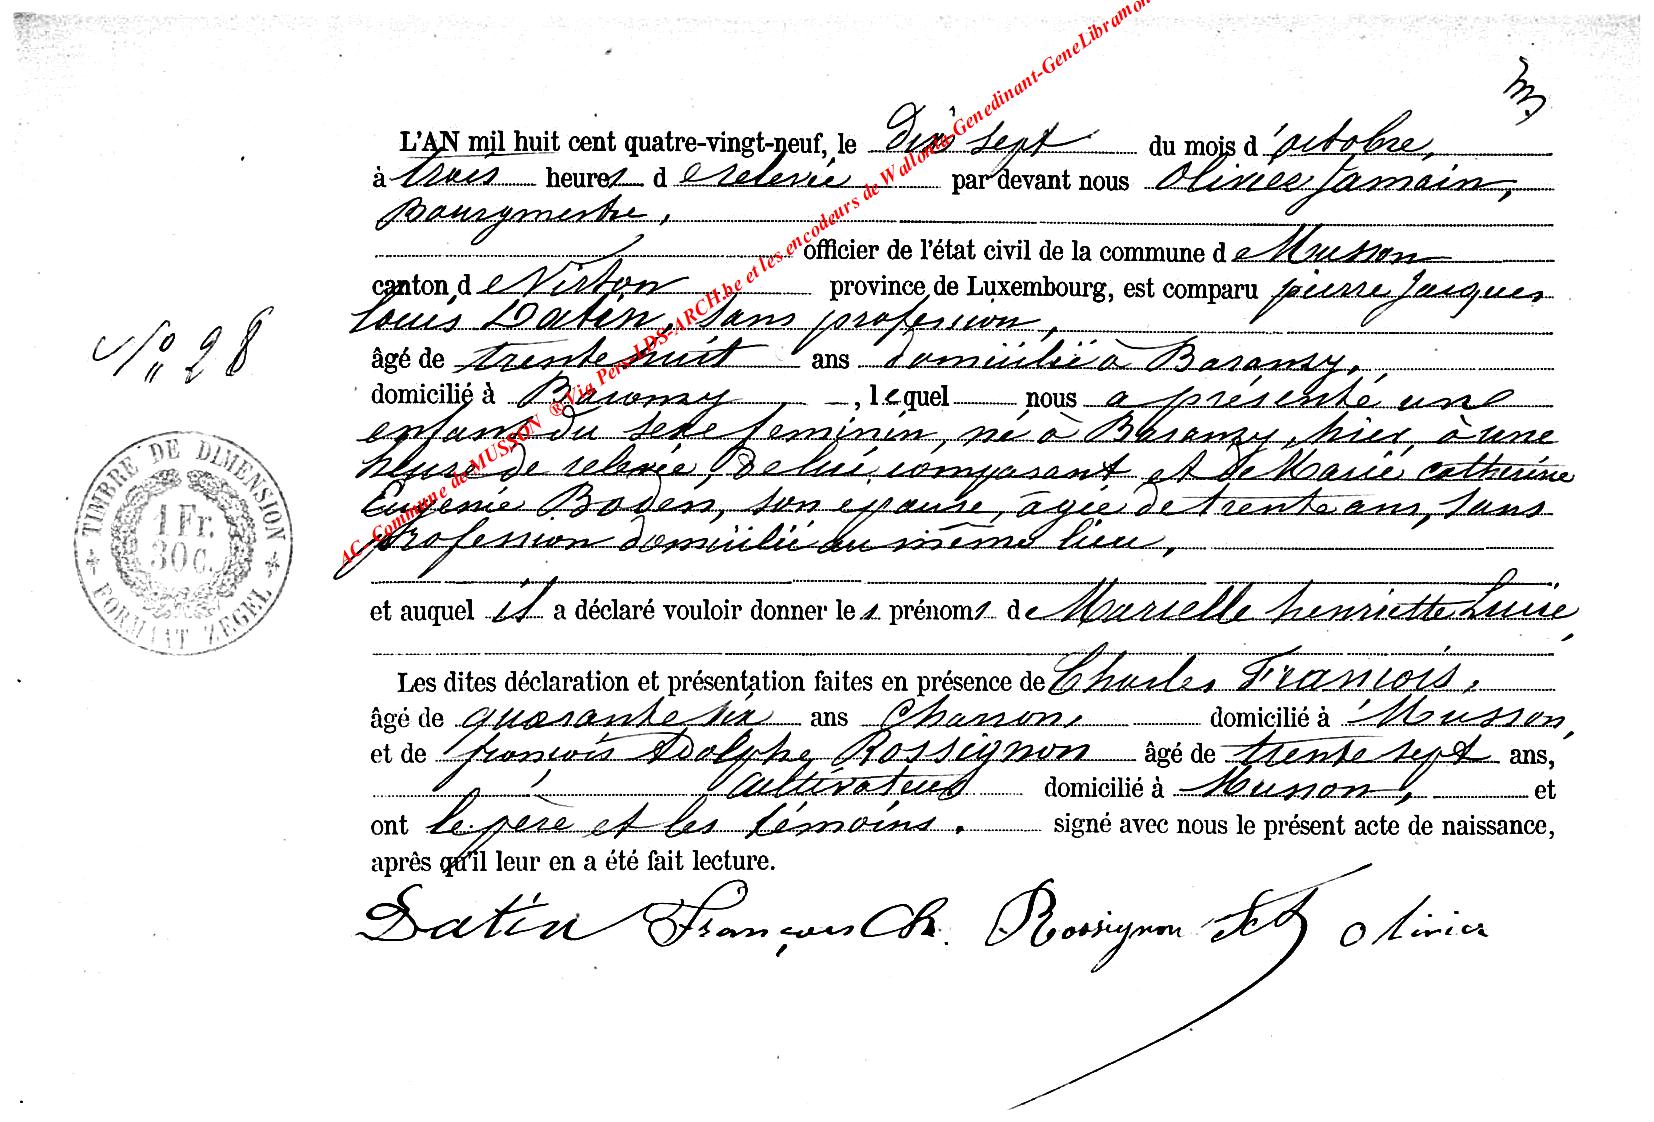 L'AN mil huit cent quatre-vingt-neuf, le Dix sept du mois d'octobre,
à trois heures de relevée par devant nous Olivier Jamain,
Bourgmestre,
officier de l'état civil de la commune de Musson
canton de Virton province de Luxembourg, est comparu pierre Jacques
Louis Datin, sans profession,
âgé de trente huit ans domicilié à Baranzy,
domicilié à Baranzy, lequel nous a présenté une
enfant du sexe feminin, né à Baranzy, hier, à une
heure de relevée, De lui comparant et de Marie catherine
Eugenie Boden, son epouse, âgée de trente ans, sans
profession domicilié au même lieu,
et auquel il a déclaré vouloir donner les prénoms de Marselle henriette Luise,
Les dites déclaration et présentation faites en présence de Charles François,
âgé de quarante six ans Charron, domicilié à Musson,
et de françois Adolphe Rossignon âgé de trente sept ans,
cultivateur domicilié à Musson, et
ont le père et les témoins. signé avec nous le présent acte de naissance,
après qu'il leur en a été fait lecture.
Datin François Ch. Rossignon Olivier
N° 28
TIMBRE DE DIMENSION
1 Fr.
30 C.
FORMAAT ZEGEL
AC. Commune de MUSSON ® Via Pers-LDS-ARCH.be et les encodeurs de Wallonia-Genedinant-GeneLibramon